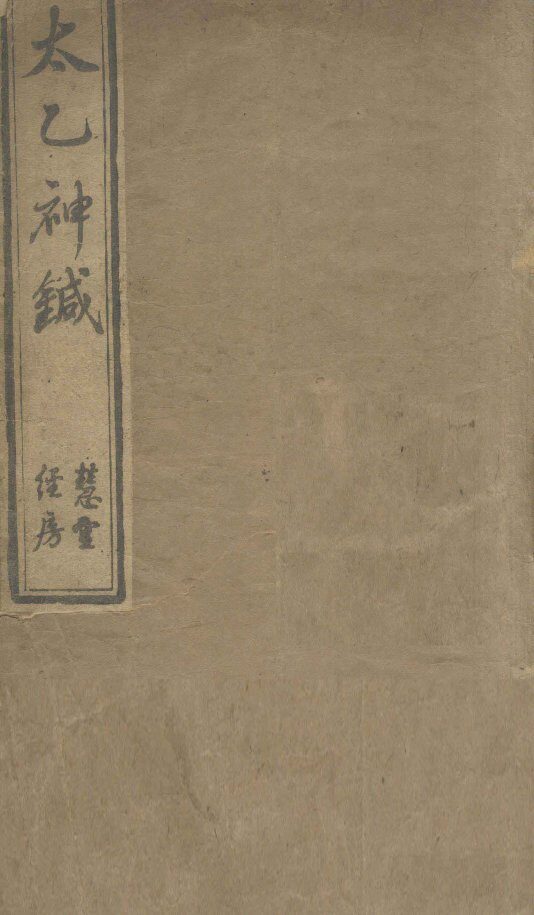 太乙神鍼
慧空
經房